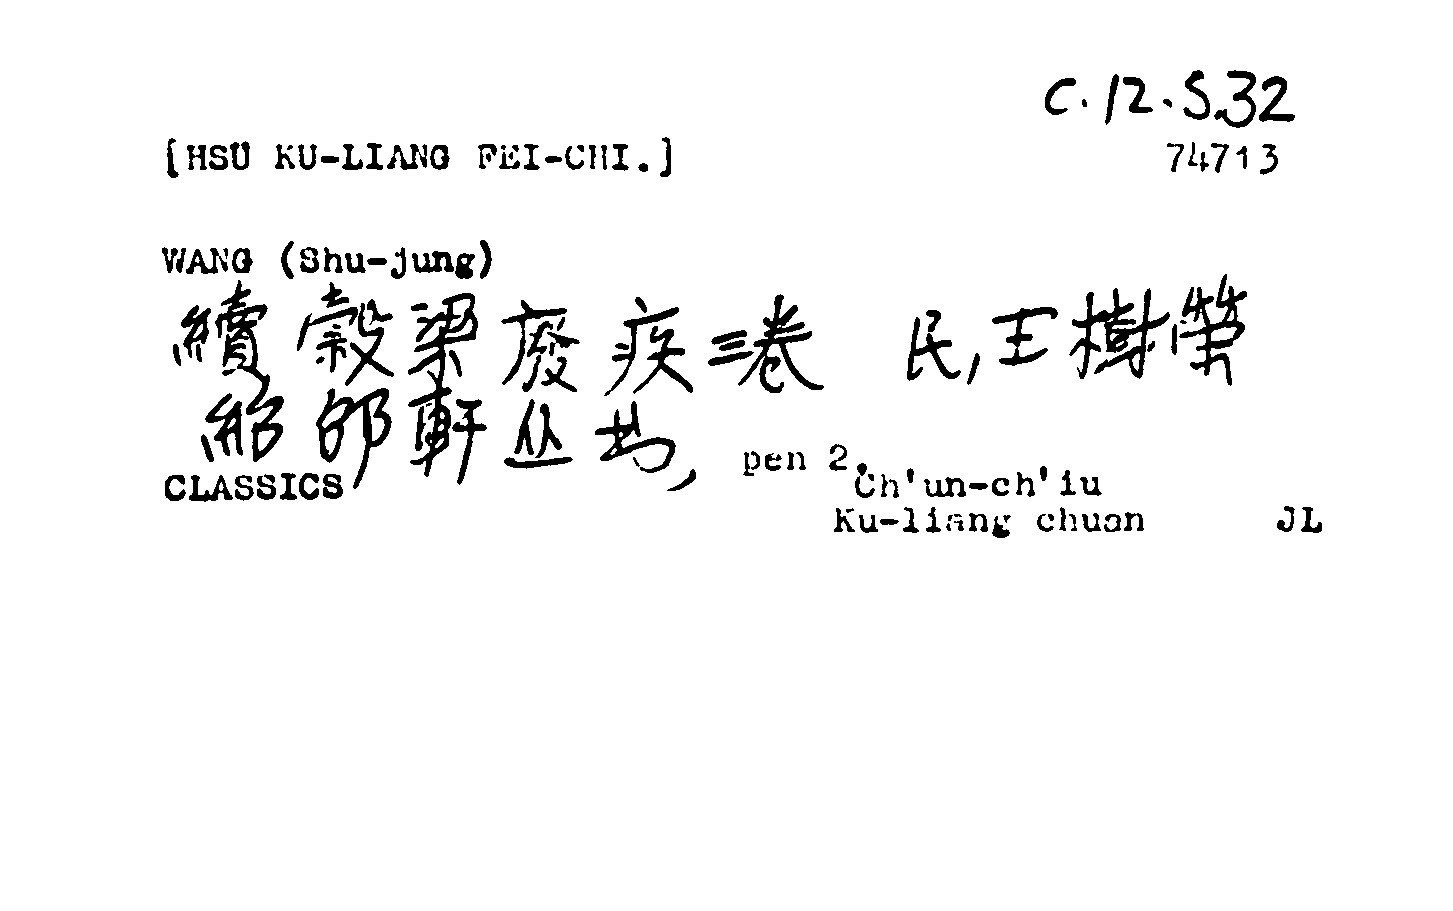 C.12.S.32
[HSÜ KU-LIANG FEI-CHI.] 74713
WANG (Shu-jung)
續穀梁廢疾三卷 民,王樹榮
紹邵軒丛书, pen 2.
CLASSICS Ch'un-ch'iu
Ku-liang chuan JL